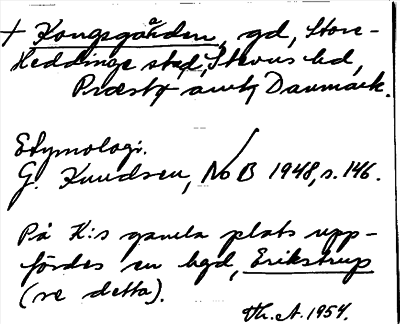 + Kongsgården, gd, Store-
Heddinge stad, Stevns hd,
Præstø amt, Danmark.
Etymologi.
G. Knudsen, NoB 1948, s. 146.
På K:s gamla plats upp-
fördes en hgd, Erikstrup
(se detta).
Th. A. 1954.